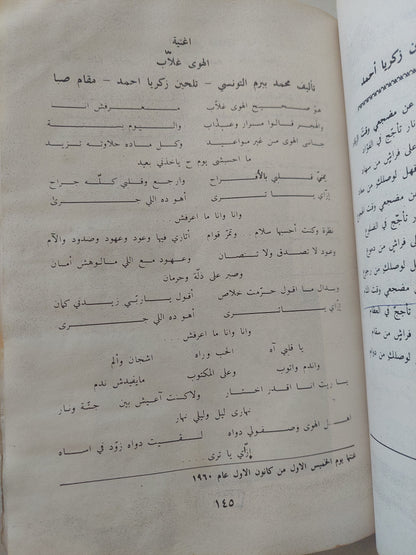 اغنية
الهوى غلاّب
تأليف محمد بيرم التونسي – تلحين زكريا احمد – مقام صبا
هو صحيح الهوى غلاّب معرفش انا
والهجر قالوا مرار وعذاب واليوم بسنة
جاني الهوى من غير مواعيد وكل ماده حلاوته تزيد
ما احسبش يوم ح ياخدني بعيد
يمنّي قلبي بالأفراح وارجع وقلبي كلّه جراح
ازّاي يا ترى أهو ده اللي جرى
وانا وانا ما اعرفش . .
نظرة وكنت أحسبها سلام . . وتمرّ قوام أتاري فيها وعود وعهود وصدود وآلام
وعود لا تصدق ولا تنصان وعهود مع اللي مالوهش أمان
وصبر على ذلّة وحرمان
وبدال ما اقول حرّمت خلاص أقول يارتّي زيدني كمان
إزّاي يا ترى أهو ده اللي جرى
وانا وانا ما اعرفش . .
يا قلبي آه الحب وراه اشجان وألم
واندم واتوب وعلى المكتوب مايفيدش ندم
يا ريت انا اقدر اختار ولاكنت أعيش بين جنّة ونار
نهاري ليل وليلي نهار
اهل الهوى وصفولي دواه لقيت دواه زوّد في اساه
إزّاي يا ترى . . .
غنتها يوم الخميس الاول من كانون الاول عام ١٩٦٠
١٤٥
ت زكريا أحمد
عن مضجعي وقت
نار تأجج في
على فراش من
فهل لوصلك من
من مضجعي وقت
تأجج في الضلوع
فراش من دموع
لوصلك من رجوع
مضجعي وقت
تأجج في العظام
فراش من سقام
لوصلك من دوام